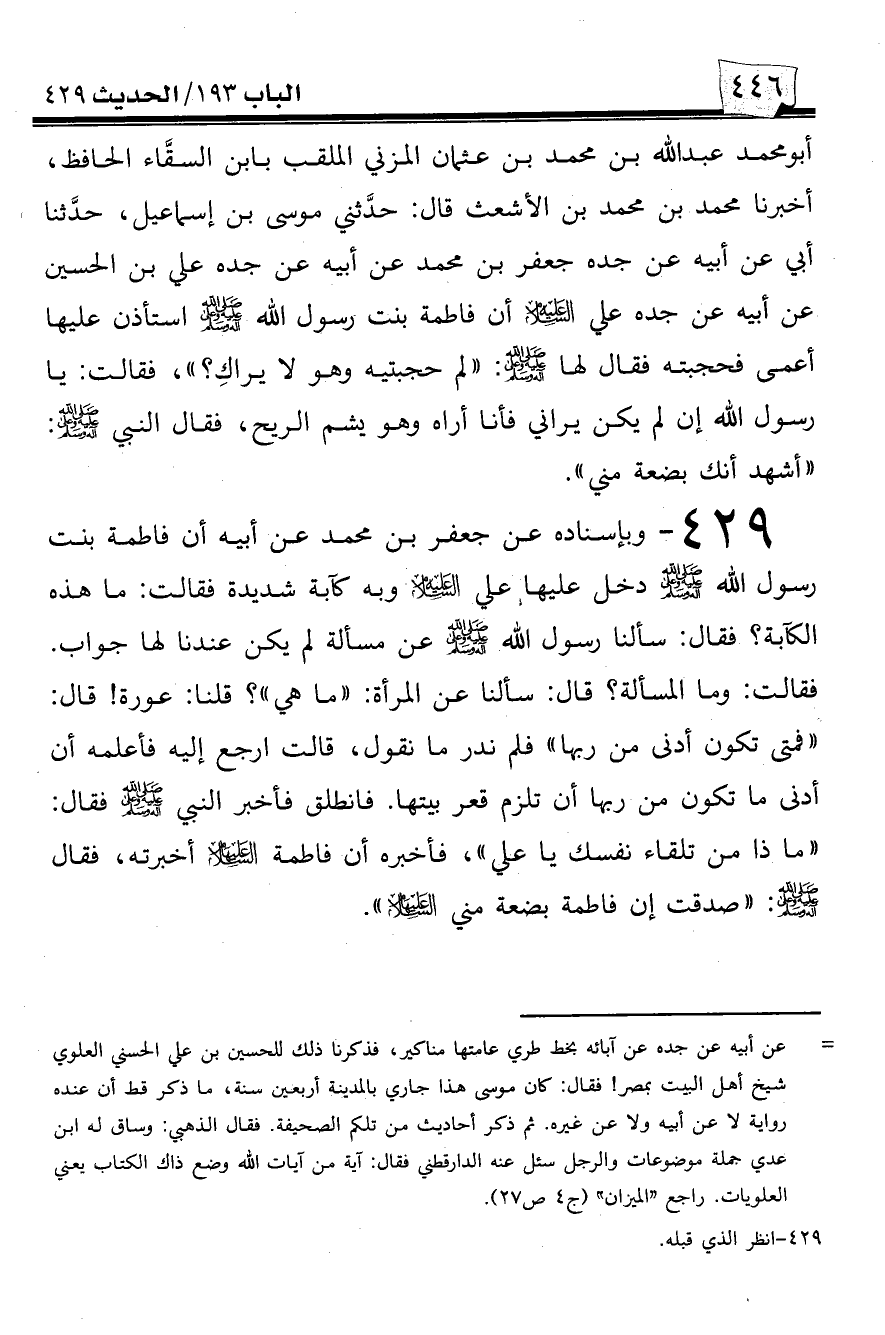 ٤٤٦
الباب ١٩٣/ الحديث ٤٢٩
أبومحمد عبدالله بن محمد بن عثمان المزني الملقب بابن السقَّاء الحافظ،
أخبرنا محمد بن محمد بن الأشعث قال: حدَّثني موسى بن إسماعيل، حدَّثنا
أبي عن أبيه عن جده جعفر بن محمد عن أبيه عن جده علي بن الحسين
عن أبيه عن جده علي عليه السلام أن فاطمة بنت رسول الله ﷺ استأذن عليها
أعمى فحجبته فقال لها ﷺ: «لم حجبتيه وهو لا يراكِ؟»، فقالت: يا
رسول الله إن لم يكن يراني فأنا أراه وهو يشم الريح، فقال النبي ﷺ:
«أشهد أنك بضعة مني».
٤٢٩- وبإسناده عن جعفر بن محمد عن أبيه أن فاطمة بنت
رسول الله ﷺ دخل عليها علي عليه السلام وبه كآبة شديدة فقالت: ما هذه
الكآبة؟ فقال: سألنا رسول الله ﷺ عن مسألة لم يكن عندنا لها جواب.
فقالت: وما المسألة؟ قال: سألنا عن المرأة: «ما هي»؟ قلنا: عورة! قال:
«فمتى تكون أدنى من ربها» فلم ندر ما نقول، قالت ارجع إليه فأعلمه أن
أدنى ما تكون من ربها أن تلزم قعر بيتها. فانطلق فأخبر النبي ﷺ فقال:
«ما ذا من تلقاء نفسك يا علي»، فأخبره أن فاطمة عليها السلام أخبرته، فقال
ﷺ: «صدقت إن فاطمة بضعة مني عليها السلام».
= عن أبيه عن جده عن آبائه بخط طري عامتها مناكير، فذكرنا ذلك للحسين بن علي الحسني العلوي
شيخ أهل البيت بمصر! فقال: كان موسى هذا جاري بالمدينة أربعين سنة، ما ذكر قط أن عنده
رواية لا عن أبيه ولا عن غيره. ثم ذكر أحاديث من تلكم الصحيفة. فقال الذهبي: وساق له ابن
عدي جملة موضوعات والرجل سئل عنه الدارقطني فقال: آية من آيات الله وضع ذاك الكتاب يعني
العلويات. راجع "الميزان" (ج٤ ص٢٧).
٤٢٩-انظر الذي قبله.